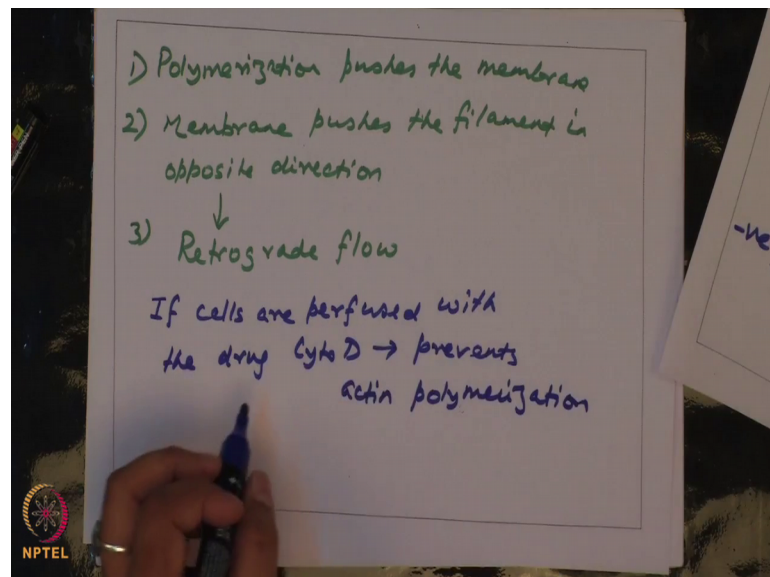 1) Polymerization pushes the membrane
2) Membrane pushes the filament in
opposite direction
↓
3) Retrograde flow
If cells are perfused with
the drug Cyto D → prevents
actin polymerization
-ve
NPTEL